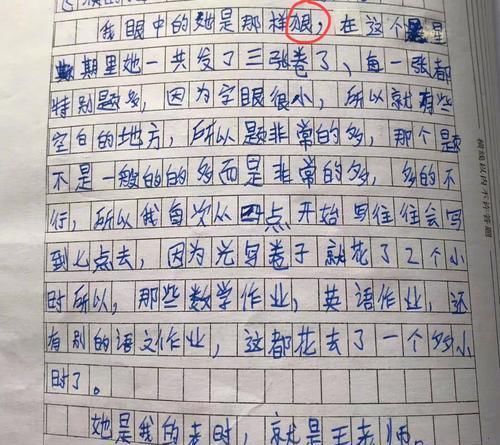 我眼中的她是那样狠，在这个星
期里她一共发了三张卷了、每一张都
特别题多，因为字眼很小，所以就有些
空白的地方，所以题非常的多，那个题
不是一般的的多而是非常的多，多的不
行，所以我每次从四点开始写往往会写
到七点去，因为光写卷子就花了2个小
时所以，那些数学作业，英语作业，还
有别的语文作业，这都花去了一个多小
时了。
她是我的老时，就是王老师。
横线以内不许答题